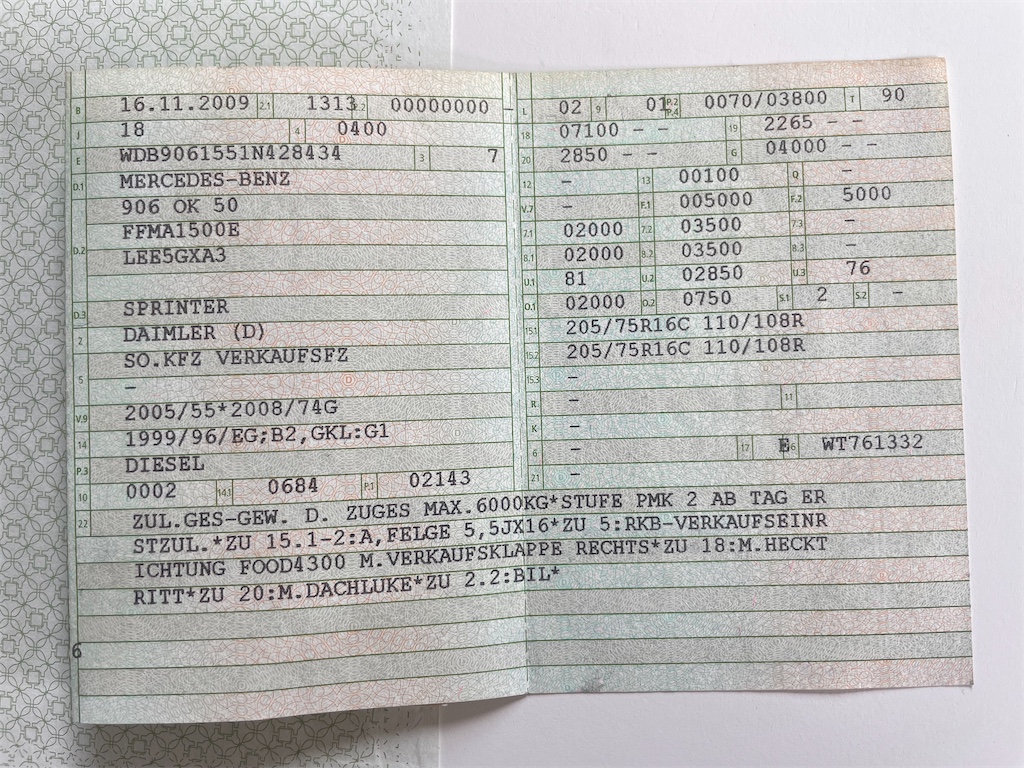 B 16.11.2009 2.1 1313 2.2 00000000 –
J 18 4 0400
E WDB9061551N428434 3 7
D.1 MERCEDES-BENZ
906 OK 50
D.2 FFMA1500E
LEE5GXA3
D.3 SPRINTER
2 DAIMLER (D)
5 SO.KFZ VERKAUFSFZ
–
V.9 2005/55*2008/74G
14 1999/96/EG;B2,GKL:G1
P.3 DIESEL
10 0002 14.1 0684 P.1 02143
L 02 9 01 P.2 P.4 0070/03800 T 90
18 07100 – – 19 2265 – –
20 2850 – – G 04000 – –
12 – 13 00100 Q –
V.7 – F.1 005000 F.2 5000
7.1 02000 7.2 03500 7.3 –
8.1 02000 8.2 03500 8.3 –
U.1 81 U.2 02850 U.3 76
O.1 02000 O.2 0750 S.1 2 S.2 –
15.1 205/75R16C 110/108R
15.2 205/75R16C 110/108R
15.3 –
R – 11
K –
6 – 17 E 16 WT761332
21 –
22 ZUL.GES-GEW. D. ZUGES MAX.6000KG*STUFE PMK 2 AB TAG ER
STZUL.*ZU 15.1-2:A,FELGE 5,5JX16*ZU 5:RKB-VERKAUFSEINR
ICHTUNG FOOD4300 M.VERKAUFSKLAPPE RECHTS*ZU 18:M.HECKT
RITT*ZU 20:M.DACHLUKE*ZU 2.2:BIL*
6